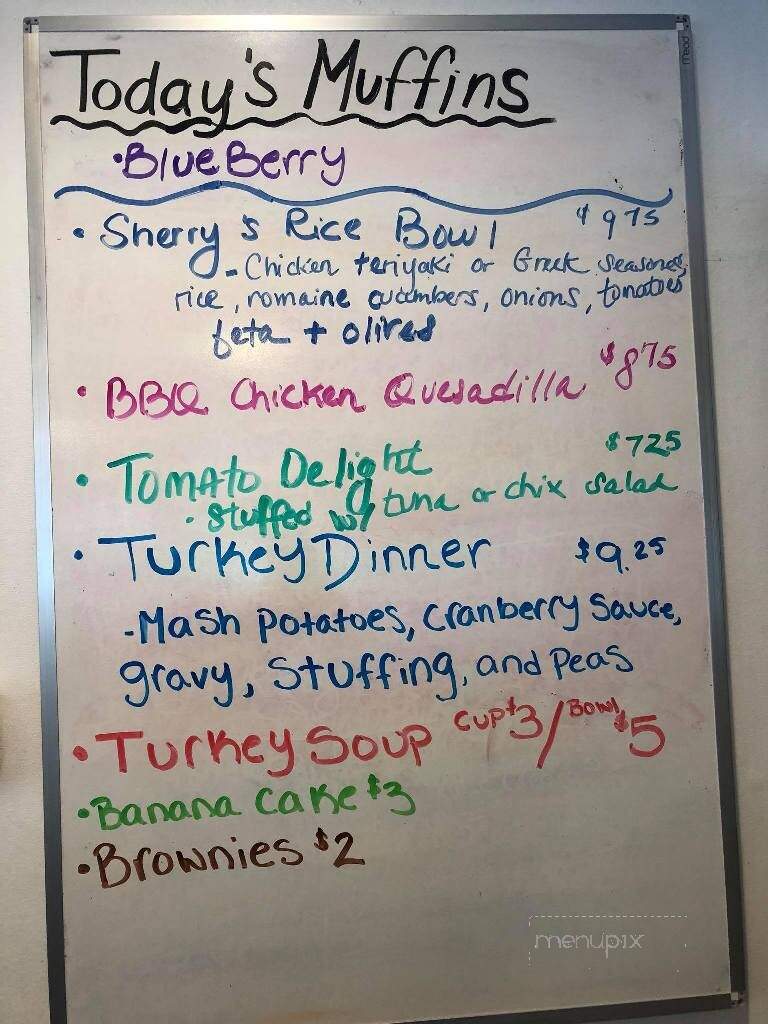 Today's Muffins
• BlueBerry
• Sherry's Rice Bowl $975
- Chicken teriyaki or Greek seasoned,
rice, romaine cucumbers, onions, tomatoes
feta + olives
• BBQ Chicken Quesadilla $875
• Tomato Delight $725
• stuffed w/ tuna or chix salad
• Turkey Dinner $9.25
- Mash potatoes, cranberry sauce,
gravy, stuffing, and peas
• Turkey Soup cup $3/Bowl $5
• Banana cake $3
• Brownies $2
mead
menupix